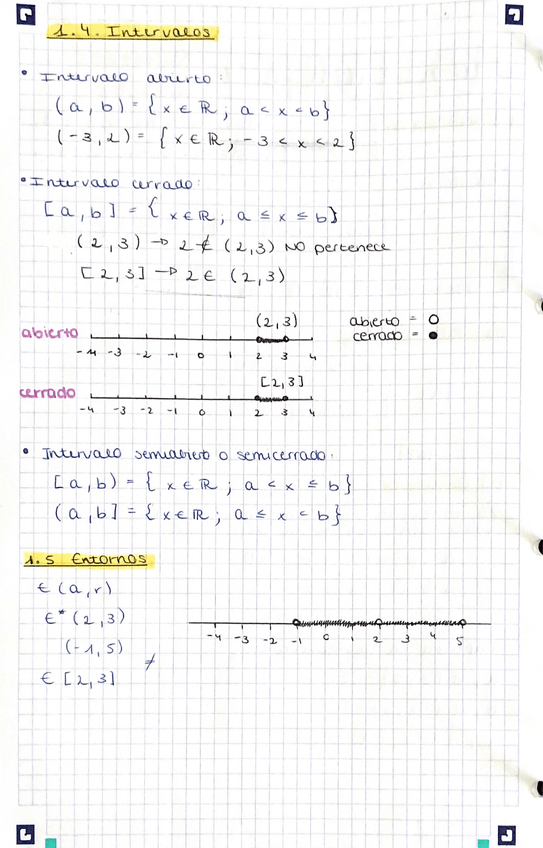 1.4. Intervalos
• Intervalo abierto:
(a, b) = { x ∈ ℝ ; a < x < b}
(-3, 2) = { x ∈ ℝ ; -3 < x < 2 }
• Intervalo cerrado:
[a, b] = { x ∈ ℝ ; a ≤ x ≤ b}
(2, 3) → 2 ∉ (2, 3) NO pertenece
[2, 3] → 2 ∈ (2, 3)
(2, 3) abierto = ○
abierto cerrado = ●
-4 -3 -2 -1 0 1 2 3 4
[2, 3]
cerrado
-4 -3 -2 -1 0 1 2 3 4
• Intervalo semiabierto o semicerrado:
[a, b) = { x ∈ ℝ ; a < x ≤ b}
(a, b] = { x ∈ ℝ ; a ≤ x < b}
1.5 Entornos
€ (a, r)
€* (2, 3)
-4 -3 -2 -1 0 1 2 3 4 5
(-1, 5)
≠
€ [2, 3]